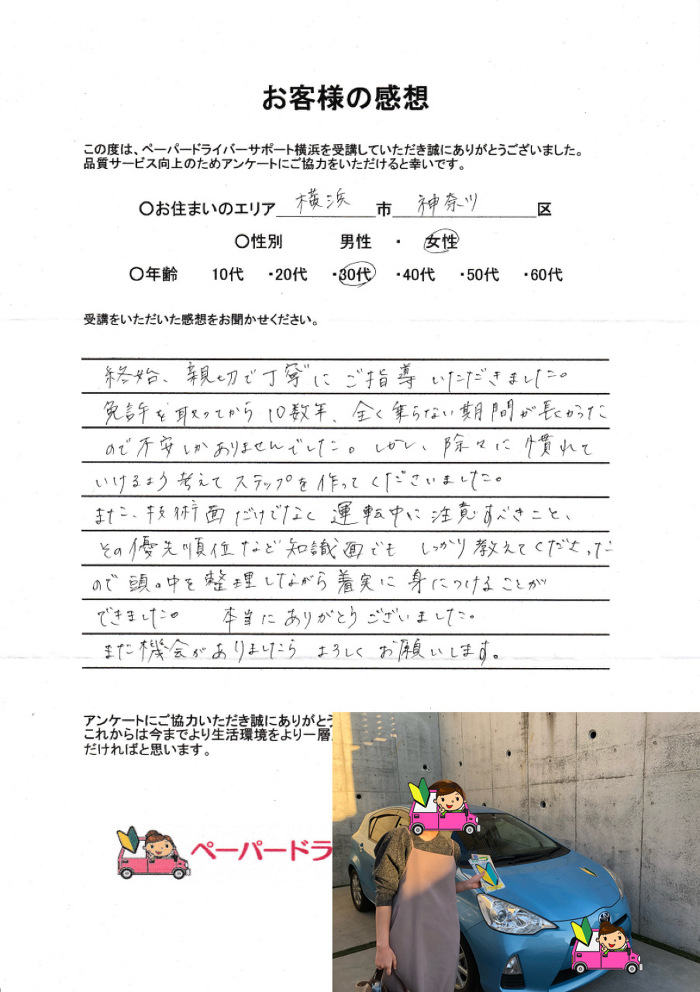 お客様の感想
この度は、ペーパードライバーサポート横浜を受講していただき誠にありがとうございました。
品質サービス向上のためアンケートにご協力をいただけると幸いです。
〇お住まいのエリア 横浜 市 神奈川 区
〇性別 男性 ・ 女性
〇年齢 10代 ・20代 ・30代 ・40代 ・50代 ・60代
受講をいただいた感想をお聞かせください。
終始、親切で丁寧にご指導いただきました。
免許を取ってから10数年、全く乗らない期間が長かった
ので不安しかありませんでした。しかし、除々に慣れて
いけるよう考えてステップを作ってくださいました。
また、技術面だけでなく運転中に注意すべきこと、
その優先順位など知識面でもしっかり教えてくださった
ので頭の中を整理しながら着実に身につけることが
できました。 本当にありがとうございました。
また機会がありましたらよろしくお願いします。
アンケートにご協力いただき誠にありがとう
これからは今までより生活環境をより一層
だければと思います。
ペーパードラ